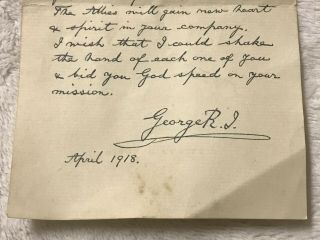 The Allies will gain new heart
& spirit in your company.
I wish that I could shake
the hand of each one of you
& bid you God speed on your
mission.
George R.I.
April 1918.